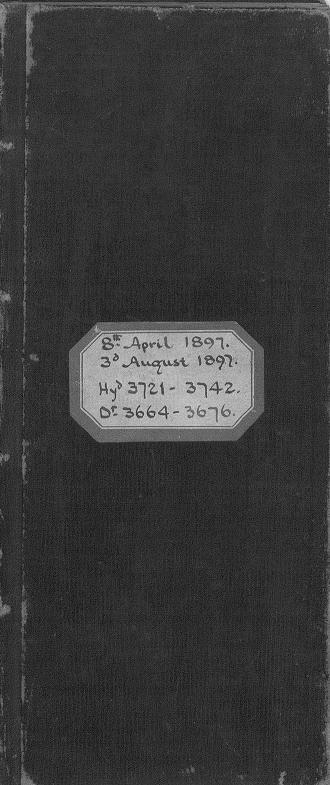 8th April 1897.
3d August 1897.
Hyd 3721 - 3742.
Dr 3664 - 3676.